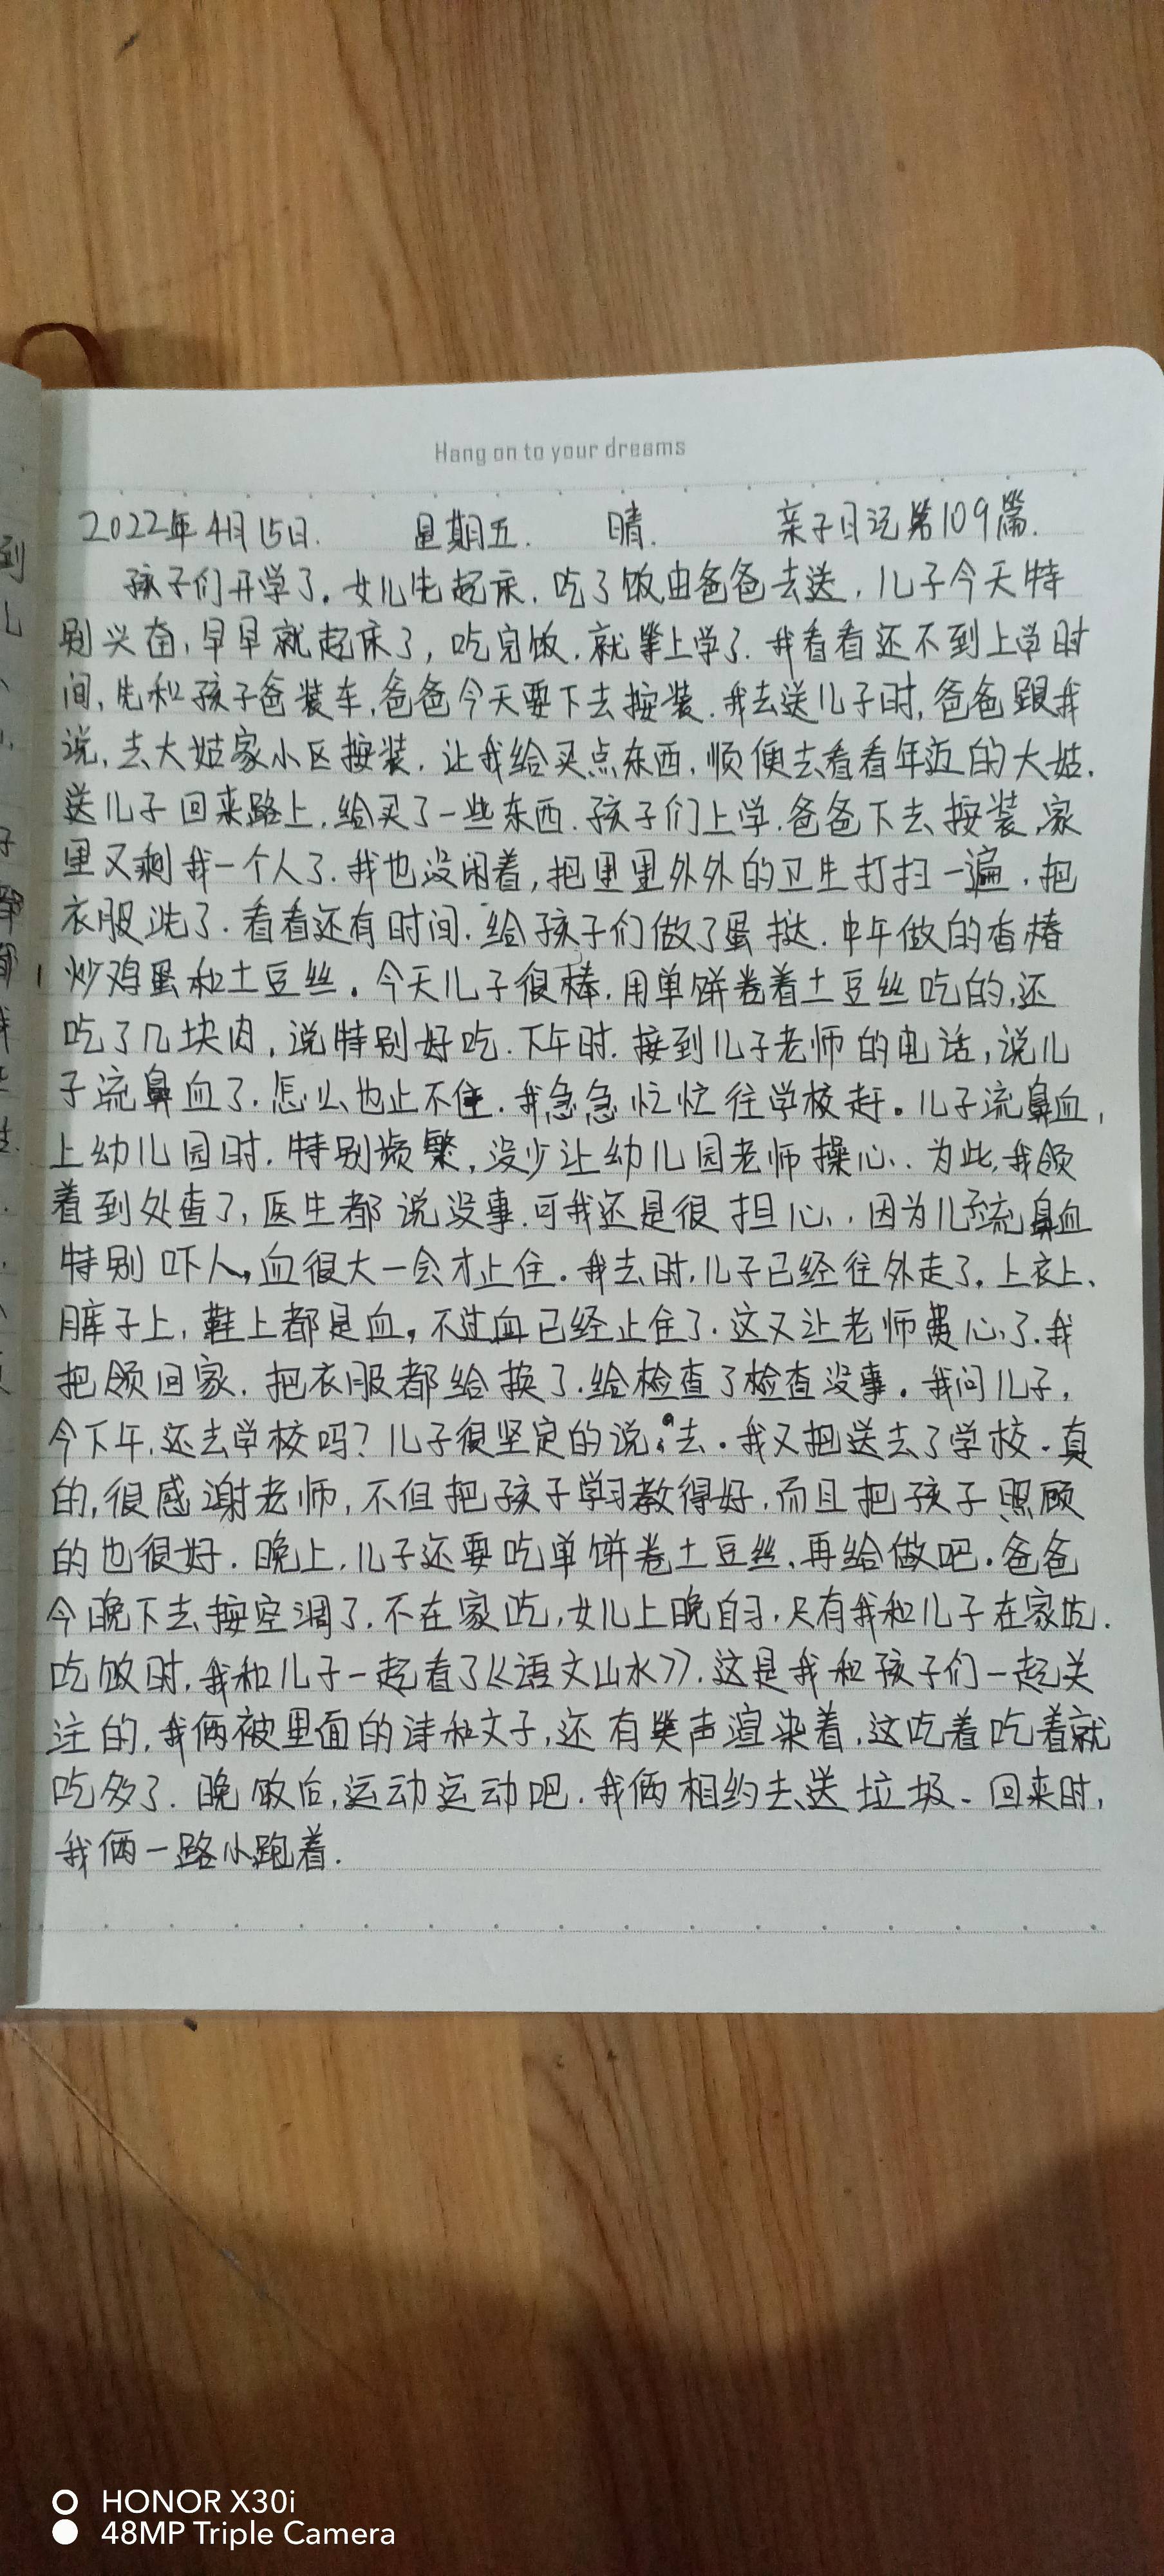 Hang on to your dreams
2022年4月15日. 星期五. 晴. 亲子日记第109篇.
孩子们开学了。女儿先起床,吃了饭由爸爸去送,儿子今天特
别兴奋,早早就起床了,吃完饭,就要上学了.我看看还不到上学时
间,先和孩子爸装车,爸爸今天要下去按装.我去送儿子时,爸爸跟我
说,去大姑家小区按装.让我给买点东西,顺便去看看年迈的大姑.
送儿子回来路上,给买了一些东西.孩子们上学.爸爸下去按装,家
里又剩我一个人了.我也没闲着,把里里外外的卫生打扫一遍.把
衣服洗了.看看还有时间.给孩子们做了蛋挞.中午做的香椿
炒鸡蛋和土豆丝。今天儿子很棒.用单饼卷着土豆丝吃的,还
吃了几块肉,说特别好吃.下午时.接到儿子老师的电话,说儿
子流鼻血了.怎么也止不住.我急急忙忙往学校赶。儿子流鼻血,
上幼儿园时.特别频繁,没少让幼儿园老师操心.为此,我领
着到处查了,医生都说没事.可我还是很担心,因为儿子流鼻血
特别吓人,血很大一会才止住。我去时,儿子已经往外走了。上衣上、
裤子上,鞋上都是血。不过血已经止住了.这又让老师费心了.我
把领回家.把衣服都给换了.给检查了检查没事。我问儿子,
今下午,还去学校吗?儿子很坚定的说:去。我又把送去了学校.真
的,很感谢老师,不但把孩子学习教得好,而且把孩子照顾
的也很好.晚上,儿子还要吃单饼卷土豆丝、再给做吧。爸爸
今晚下去按空调了.不在家吃,女儿上晚自习,只有我和儿子在家吃.
吃饭时,我和儿子一起看了《语文山水》.这是我和孩子们一起关
注的,我俩被里面的诗和文字,还有笑声渲染着,这吃着吃着就
吃多了.晚饭后,运动运动吧.我俩相约去送垃圾.回来时,
我俩一路小跑着.
HONOR X30i
48MP Triple Camera